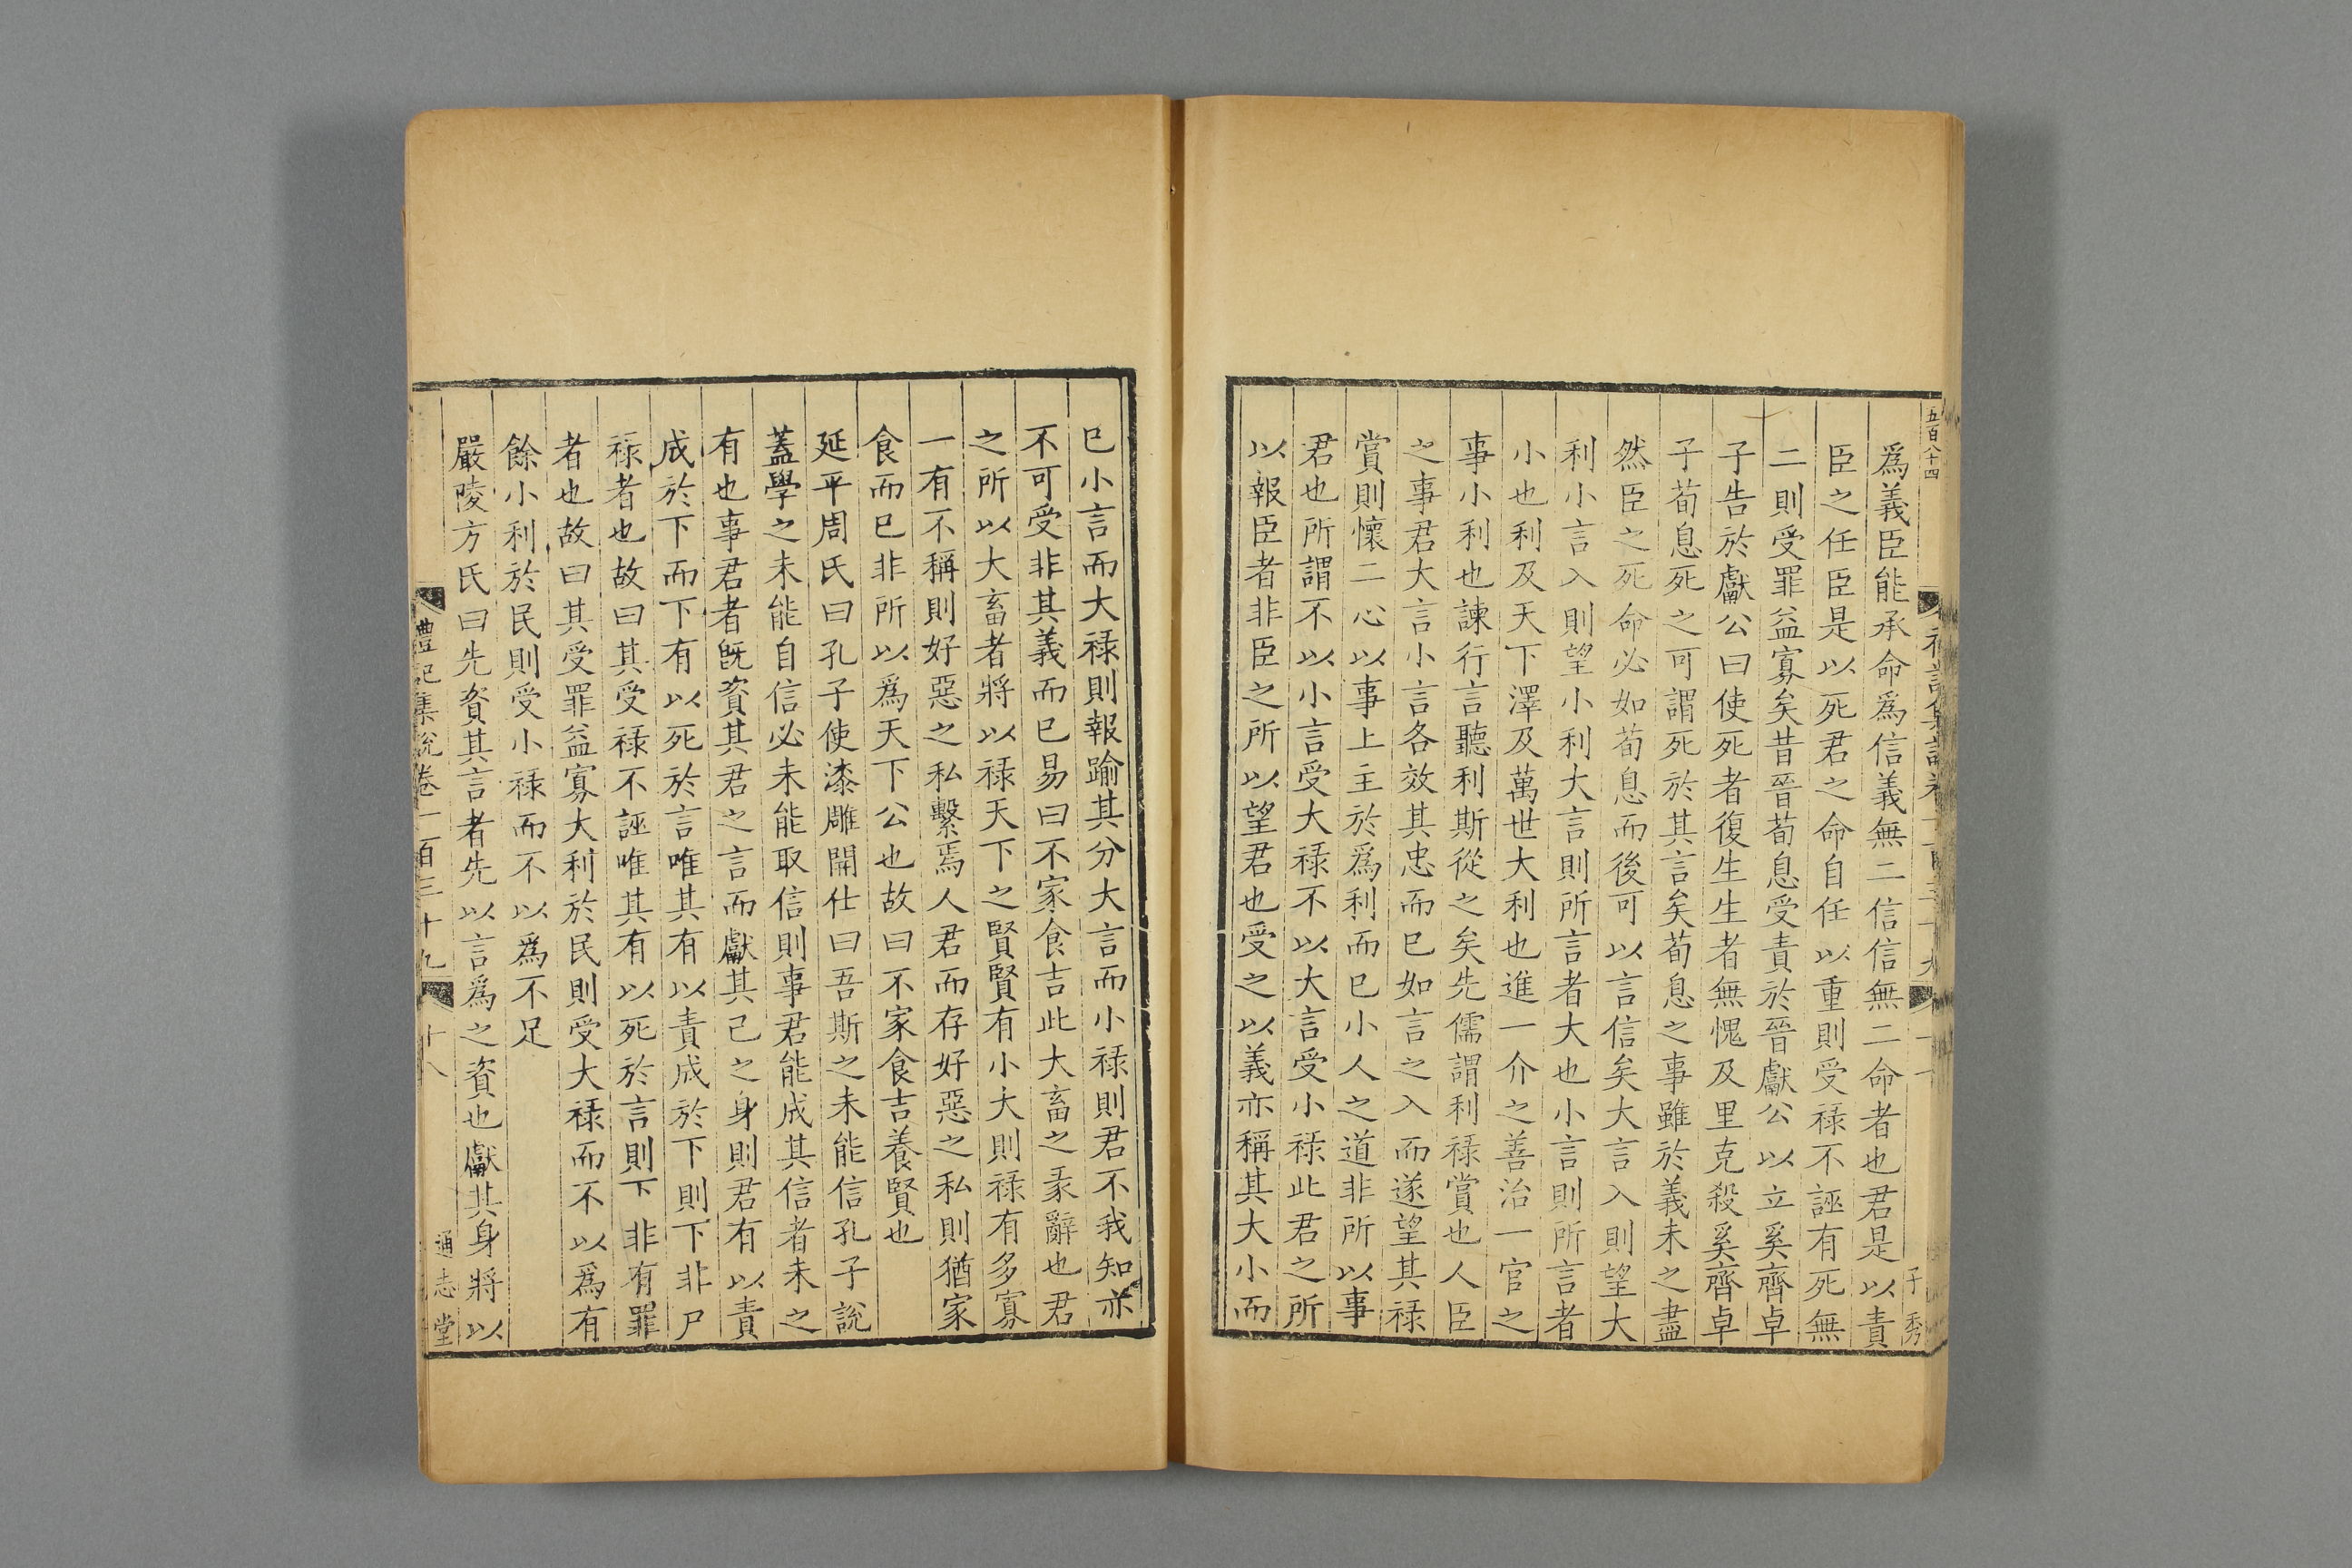 五百八十四
子秀
爲義臣能承命爲信義無二信信無二命者也君是以責
臣之任臣是以死君之命自任以重則受祿不誣有死無
二則受罪益寡矣昔晉荀息受責於晉獻公以立奚齊卓
子告於獻公曰使死者復生生者無愧及里克殺奚齊卓
子荀息死之可謂死於其言矣荀息之事雖於義未之盡
然臣之死命必如荀息而後可以言信矣大言入則望大
利小言入則望小利大言則所言者大也小言則所言者
小也利及天下澤及萬世大利也進一介之善治一官之
事小利也諫行言聽利斯從之矣先儒謂利祿賞也人臣
之事君大言小言各效其忠而已如言之入而遂望其祿
賞則懷二心以事上主於爲利而已小人之道非所以事
君也所謂不以小言受大祿不以大言受小祿此君之所
以報臣者非臣之所以望君也受之以義亦稱其大小而
已小言而大祿則報踰其分大言而小祿則君不我知亦
不可受非其義而已易曰不家食吉此大畜之彖辭也君
之所以大畜者將以祿天下之賢賢有小大則祿有多寡
一有不稱則好惡之私繫焉人君而存好惡之私則猶家
食而已非所以爲天下公也故曰不家食吉養賢也
延平周氏曰孔子使漆雕開仕曰吾斯之未能信孔子說
蓋學之未能自信必未能取信則事君能成其信者未之
有也事君者既資其君之言而獻其己之身則君有以責
成於下而下有以死於言唯其有以責成於下則下非尸
祿者也故曰其受祿不誣唯其有以死於言則下非有罪
者也故曰其受罪益寡大利於民則受大祿而不以爲有
餘小利於民則受小祿而不以爲不足
嚴陵方氏曰先資其言者先以言爲之資也獻其身將以
禮記集說卷一百三十九
十八
通志堂